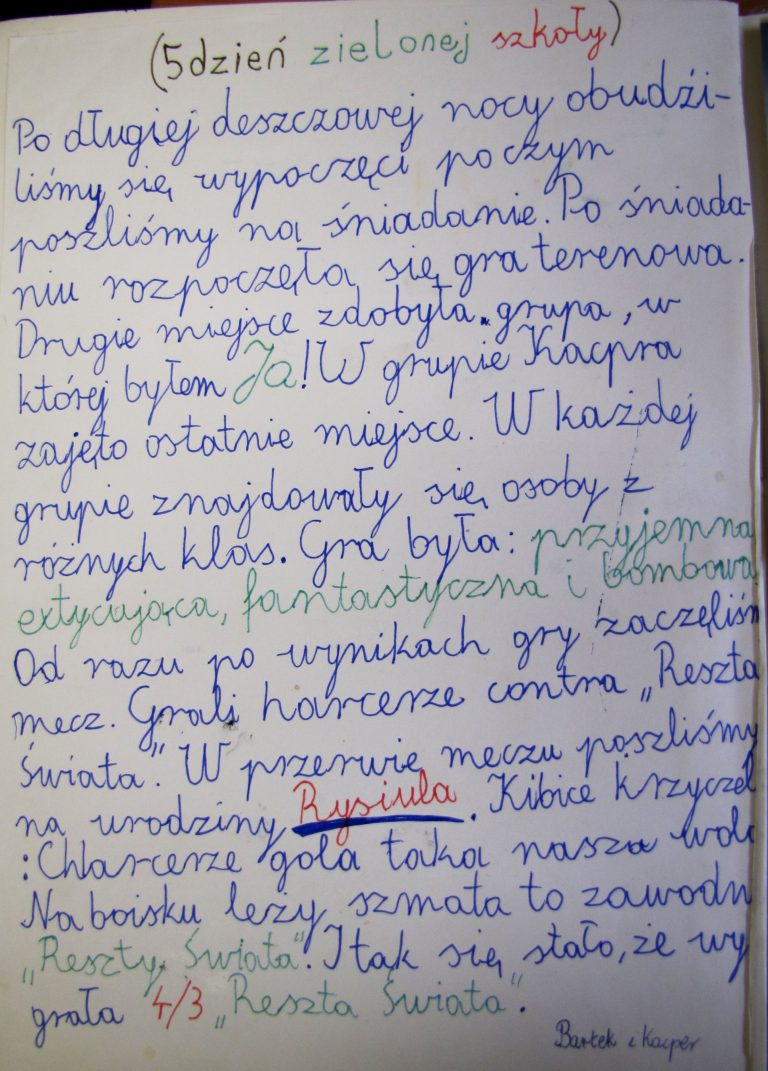 (5dzień zielonej szkoły)
Po długiej deszczowej nocy obudźi-
liśmy się wypoczęci po czym
poszliśmy na śniadanie. Po śniada-
niu rozpoczęła się gra terenowa.
Drugie miejsce zdobyła grupa, w
której byłem Ja! W grupie Kacpra
zajęto ostatnie miejsce. W każdej
grupie znajdowały się osoby z
różnych klas. Gra była: przyjemna
extycująca, fantastyczna i bombowa
Od razu po wynikach gry zaczęliśm
mecz. Grali harcerze contra „Reszta
Świata". W przerwie meczu poszliśmy
na urodziny Rysiula. Kibice krzyczel
:Chlarcerze gola taka nasza wola
Na boisku leży szmata to zawodn
„Reszty Świata". I tak się stało, że wy
grała 4/3 „Reszta Świata".
Bartek i Kacper